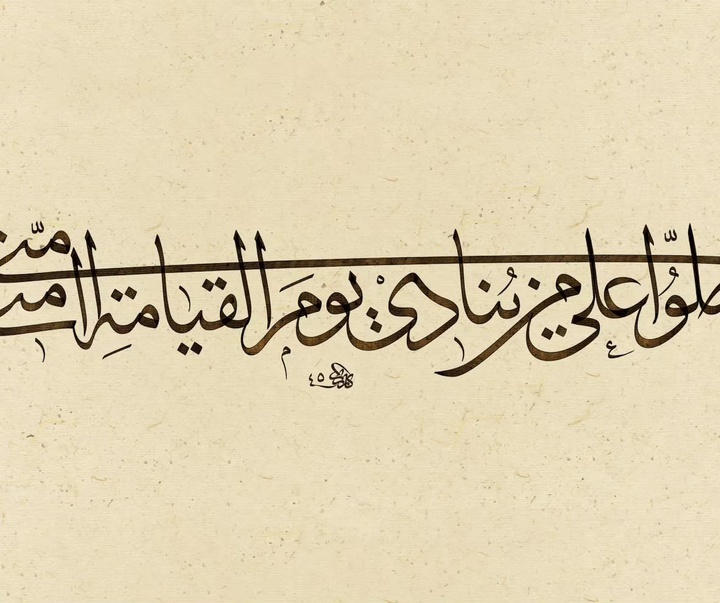 صلّوا على من يُنادي يومَ القيامةِ امتي امّتي